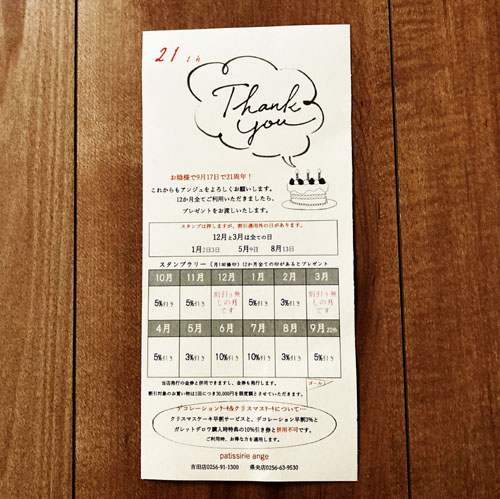 21th
Thank
you
お陰様で9月17日で21周年！
これからもアンジュをよろしくお願いします。
12か月全てご利用いただきましたら、
プレゼントをお渡しいたします。
スタンプは押しますが、割引適用外の日があります。
12月と3月は全ての日
1月2日3日 5月9日 8月13日
スタンプラリー（月1回捺印）12か月全ての印があるとプレゼント
10月 11月 12月 1月 2月 3月
5%引き 5%引き 割引き無しの月です 5%引き 3%引き 割引き無しの月です
4月 5月 6月 7月 8月 9月22th
5%引き 3%引き 10%引き 10%引き 3%引き 5%引き
当店発行の金券と併用できますし、金券も発行します。
ゴール！
割引対象のお買い物は1回につき30,000円を限度額とさせていただきます。
デコレーションケーキ&クリスマスケーキについて…
クリスマスケーキ早割サービスと、デコレーション早割3%と
ガレットデロワ購入時特典の10%引き券と併用不可です。
ご利用時、お得な方を適用します。
patissirie ange
吉田店0256-91-1300 県央店0256-63-9530